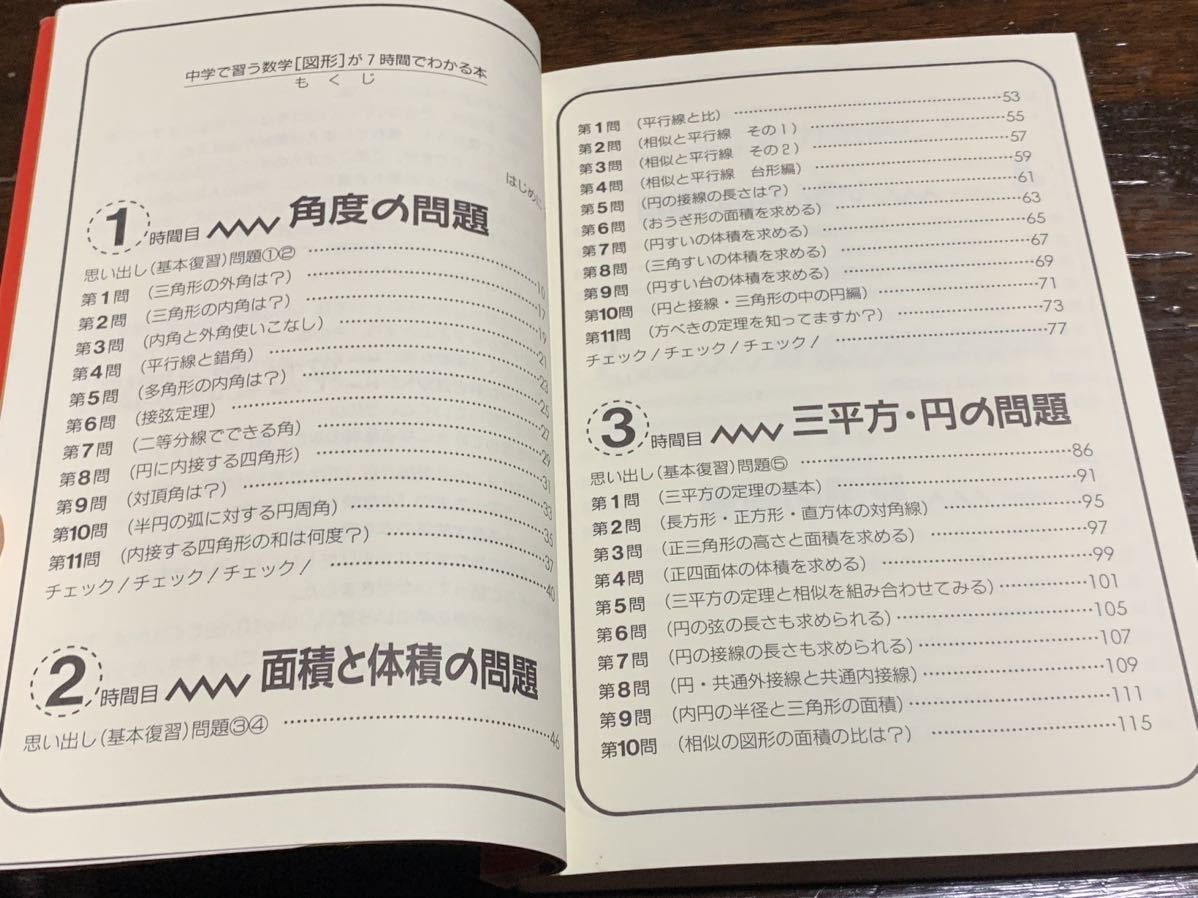 中学で習う数学[図形]が7時間でわかる本
もくじ
はじめに
1時間目 角度の問題
思い出し(基本復習)問題①② ……………… 10
第1問 (三角形の外角は?) ……………… 17
第2問 (三角形の内角は?) ……………… 19
第3問 (内角と外角使いこなし) ……………… 21
第4問 (平行線と錯角) ……………… 23
第5問 (多角形の内角は?) ……………… 25
第6問 (接弦定理) ……………… 27
第7問 (二等分線でできる角) ……………… 29
第8問 (円に内接する四角形) ……………… 31
第9問 (対頂角は?) ……………… 33
第10問 (半円の弧に対する円周角) ……………… 35
第11問 (内接する四角形の和は何度?) ……………… 37
チェック!チェック!チェック! ……………… 40
2時間目 面積と体積の問題
思い出し(基本復習)問題③④ ……………… 46
第1問 (平行線と比) ……………… 53
第2問 (相似と平行線 その1) ……………… 55
第3問 (相似と平行線 その2) ……………… 57
第4問 (相似と平行線 台形編) ……………… 59
第5問 (円の接線の長さは?) ……………… 61
第6問 (おうぎ形の面積を求める) ……………… 63
第7問 (円すいの体積を求める) ……………… 65
第8問 (三角すいの体積を求める) ……………… 67
第9問 (円すい台の体積を求める) ……………… 69
第10問 (円と接線・三角形の中の円編) ……………… 71
第11問 (方べきの定理を知ってますか?) ……………… 73
チェック!チェック!チェック! ……………… 77
3時間目 三平方・円の問題
思い出し(基本復習)問題⑤ ……………… 86
第1問 (三平方の定理の基本) ……………… 91
第2問 (長方形・正方形・直方体の対角線) ……………… 95
第3問 (正三角形の高さと面積を求める) ……………… 97
第4問 (正四面体の体積を求める) ……………… 99
第5問 (三平方の定理と相似を組み合わせてみる) ……………… 101
第6問 (円の弦の長さも求められる) ……………… 105
第7問 (円の接線の長さも求められる) ……………… 107
第8問 (円・共通外接線と共通内接線) ……………… 109
第9問 (内円の半径と三角形の面積) ……………… 111
第10問 (相似の図形の面積の比は?) ……………… 115